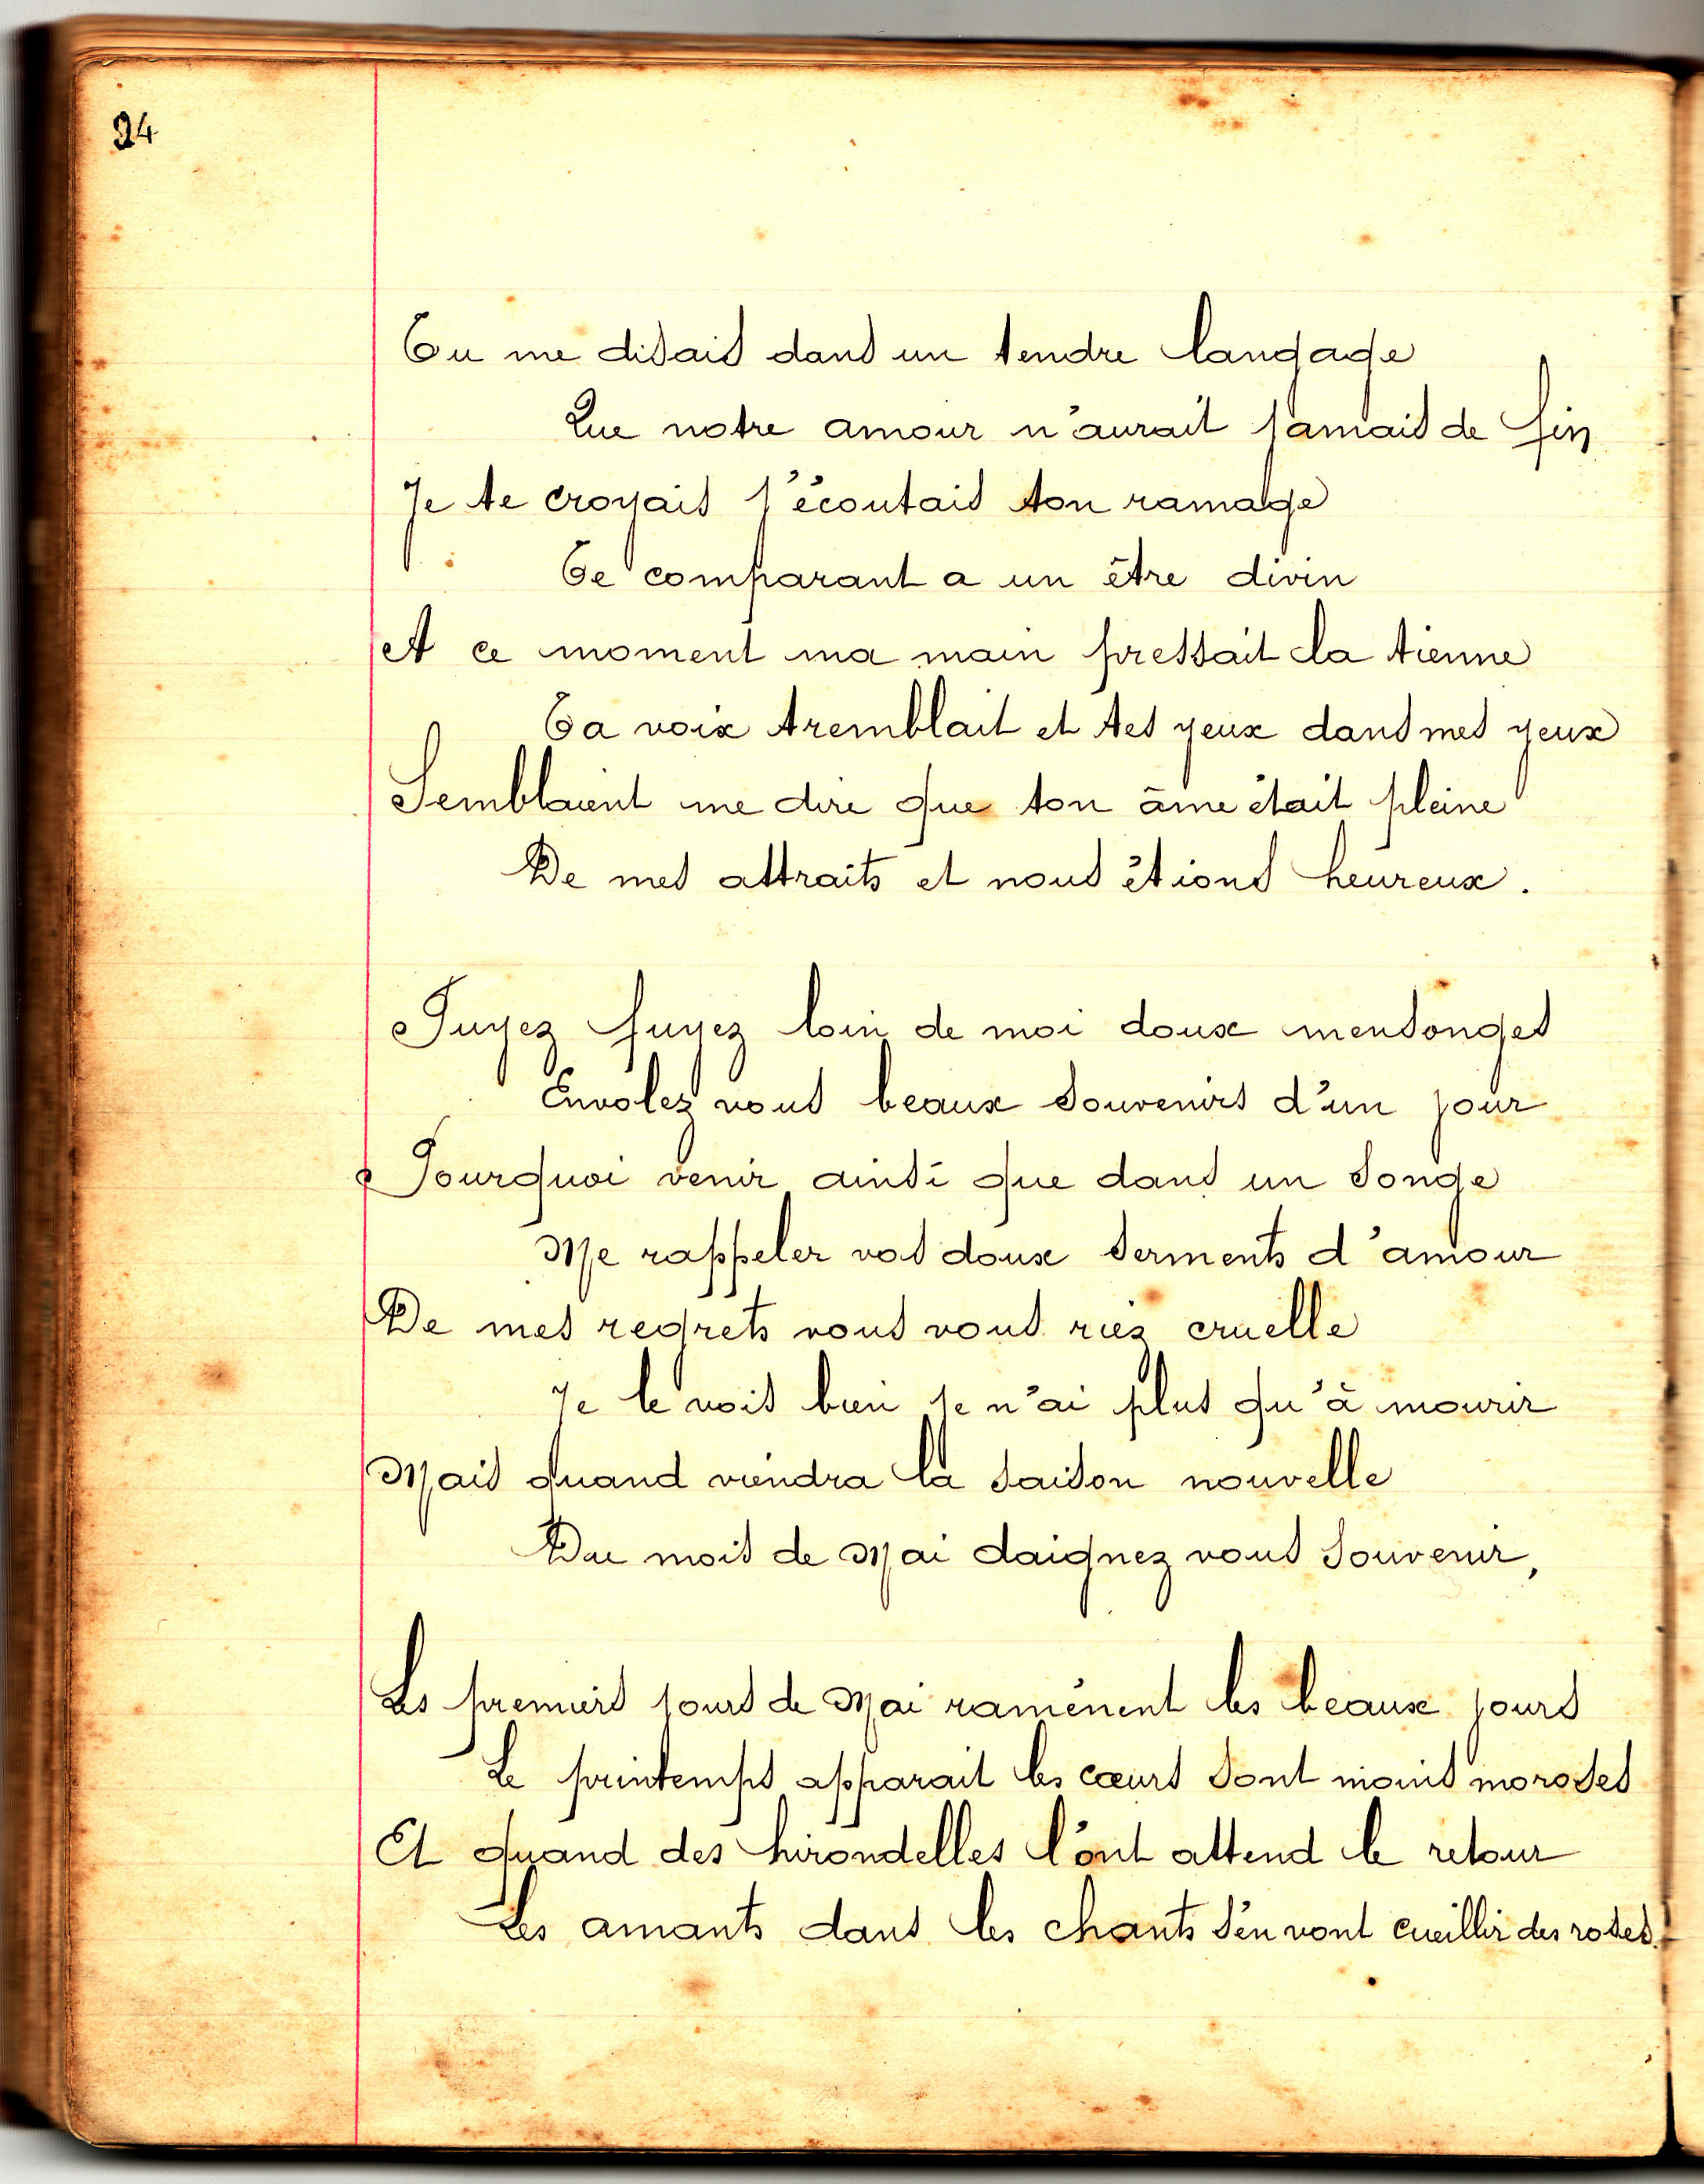 24
Tu me disais dans un tendre langage
Que notre amour n'aurait jamais de fin
Je te croyais j'écoutais ton ramage
Te comparant a un être divin
A ce moment ma main pressait la tienne
Ta voix tremblait et tes yeux dans mes yeux
Semblaient me dire que ton âme était pleine
De mes attraits et nous étions heureux.
Fuyez fuyez loin de moi doux mensonges
Envolez vous beaux souvenirs d'un jour
Pourquoi venir ainsi que dans un songe
Me rappeler vos doux serments d'amour
De mes regrets vous vous riez cruelle
Je le vois bien je n'ai plus qu'à mourir
Mais quand viendra la saison nouvelle
Du mois de Mai daignez vous souvenir,
Les premiers jours de Mai ramènent les beaux jours
Le printemps apparait les cœurs sont moins moroses
Et quand des hirondelles l'ont attend le retour
Les amants dans les chants s'en vont cueillir des roses!